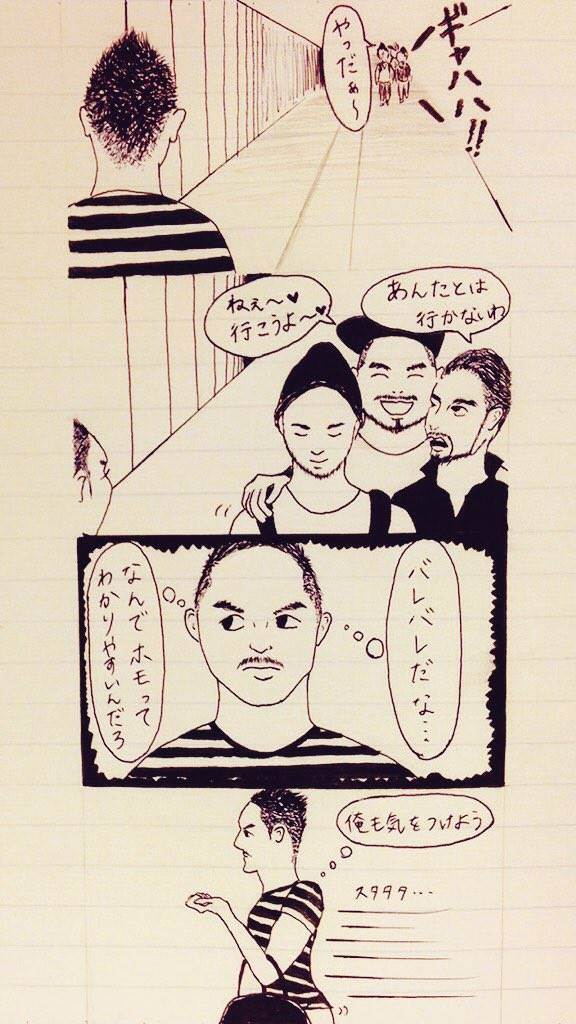 ギャハハハ!!
やっだぁ〜
あんたとは
行かないわ
ねぇ〜♥
行こうよ〜♥
バレバレだな…
なんでホモって
わかりやすいんだろ
俺も気をつけよう
スタタタ…